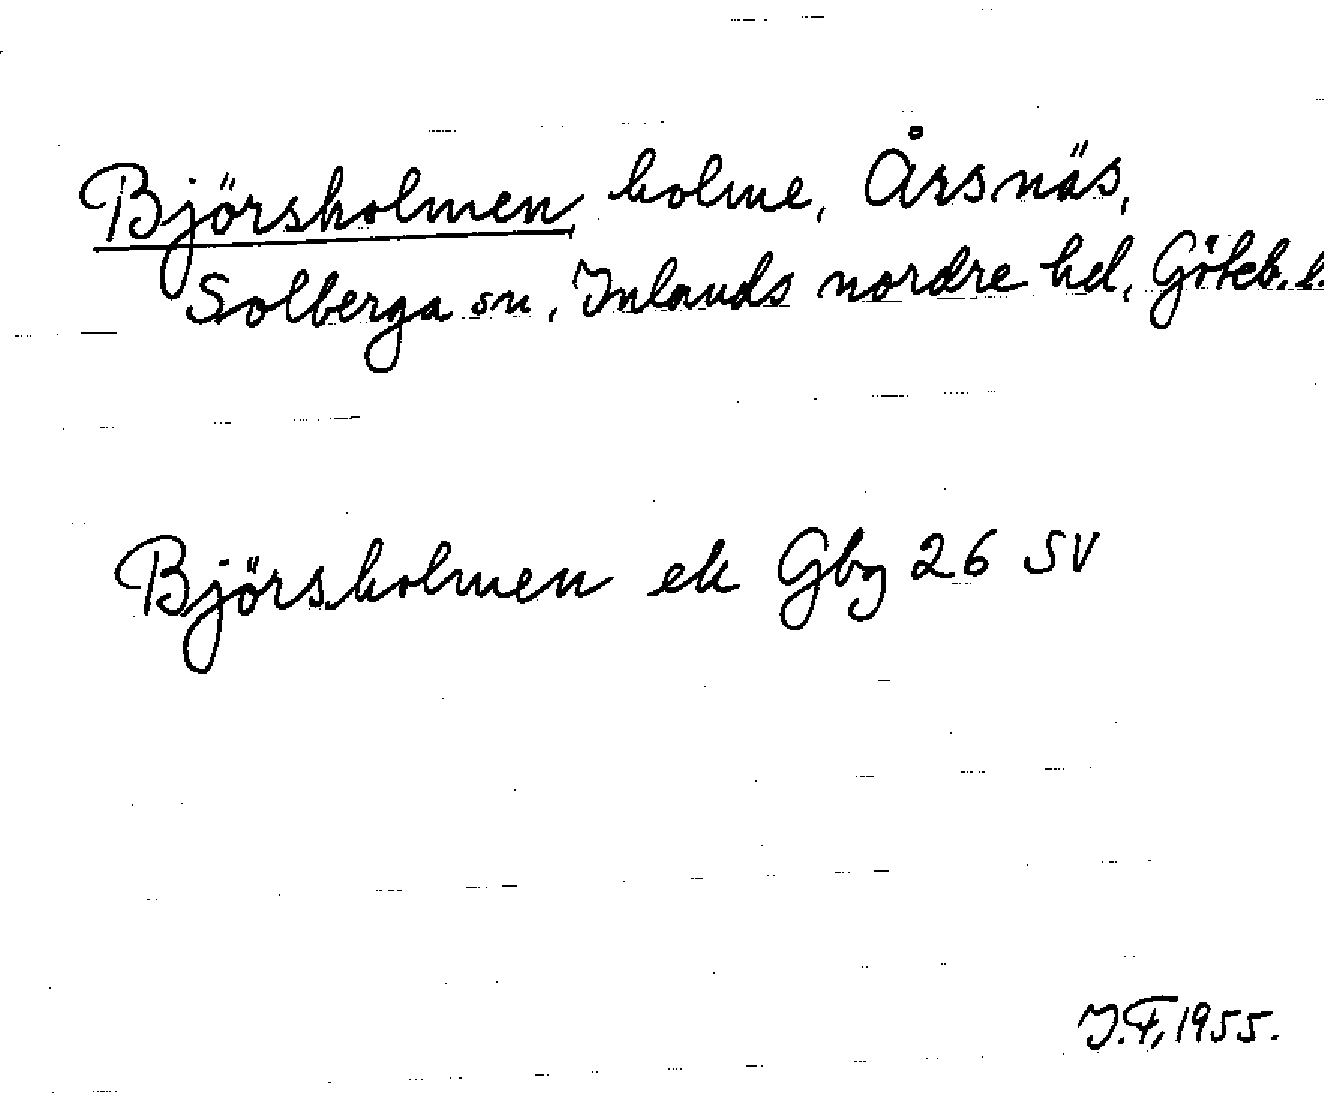 Björsholmen, holme, Årsnäs,
Solberga sn, Inlands nordre hd, Göteb. l.
Björsholmen ek Gbg 26 SV
J.F. 1955.